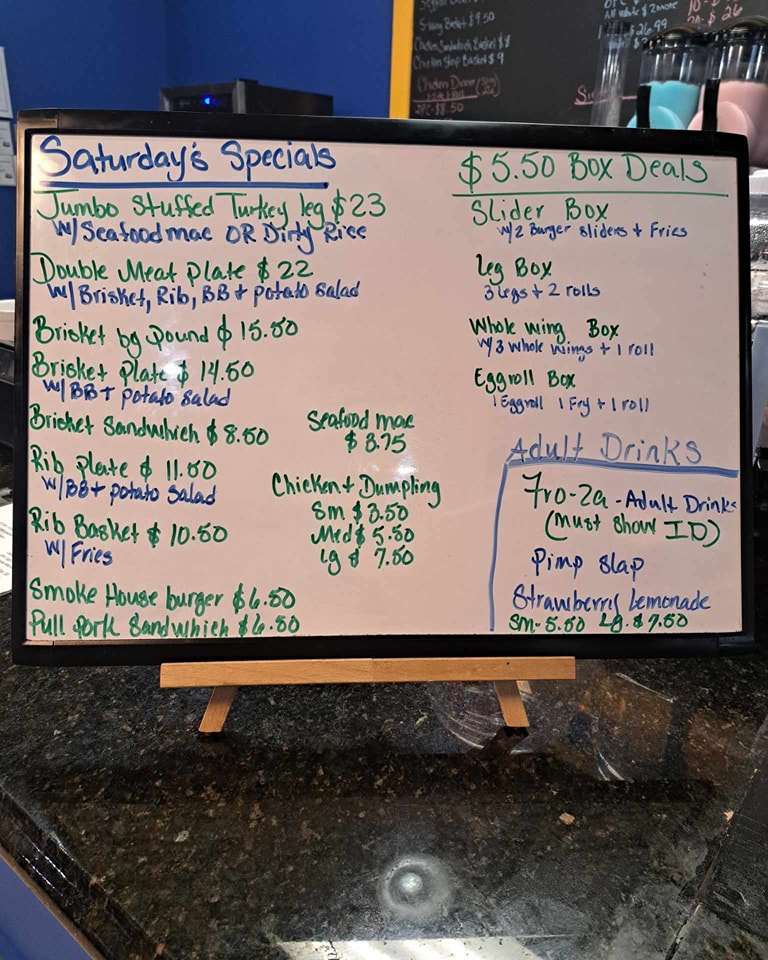 Swing Basket $9.50
Chicken Sandwhich Basket $8
Chicken Strip Basket $9
Chicken Dinner
Saturday's Specials
Jumbo Stuffed Turkey leg $23
w/Seafood mac OR Dirty Rice
Double Meat Plate $22
w/Brisket, Rib, BB + potato salad
Brisket by pound $15.50
Brisket Plate $14.50
w/BB+ potato salad
Brisket Sandwhich $8.50
Rib plate $11.50
w/BB+ potato salad
Rib Basket $10.50
w/Fries
Smoke House burger $6.50
Pull Pork Sandwhich $6.50
Seafood mac
$3.75
Chicken + Dumpling
Sm $3.50
Med $5.50
Lg $7.50
$5.50 Box Deals
Slider Box
w/2 Burger sliders + Fries
Leg Box
3 legs + 2 rolls
Whole wing Box
w/3 whole wings + 1 roll
Eggroll Box
1 Eggroll 1 Fry + 1 roll
Adult Drinks
Fro-Za - Adult Drinks
(Must show ID)
Pimp Slap
Strawberry Lemonade
Sm- 5.50 Lg. $7.50